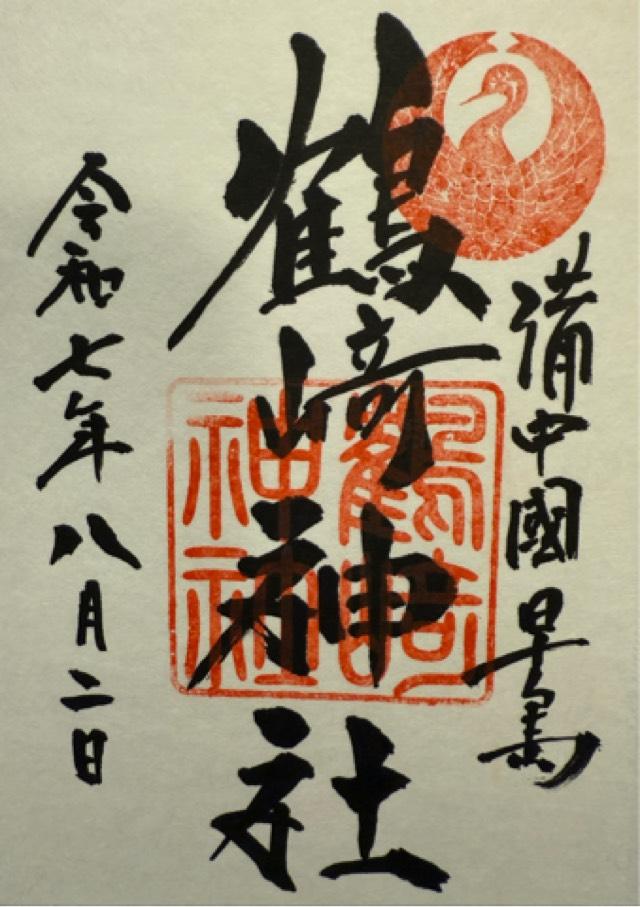 備中國早島
鶴﨑神社
鶴﨑神社
令和七年八月二日